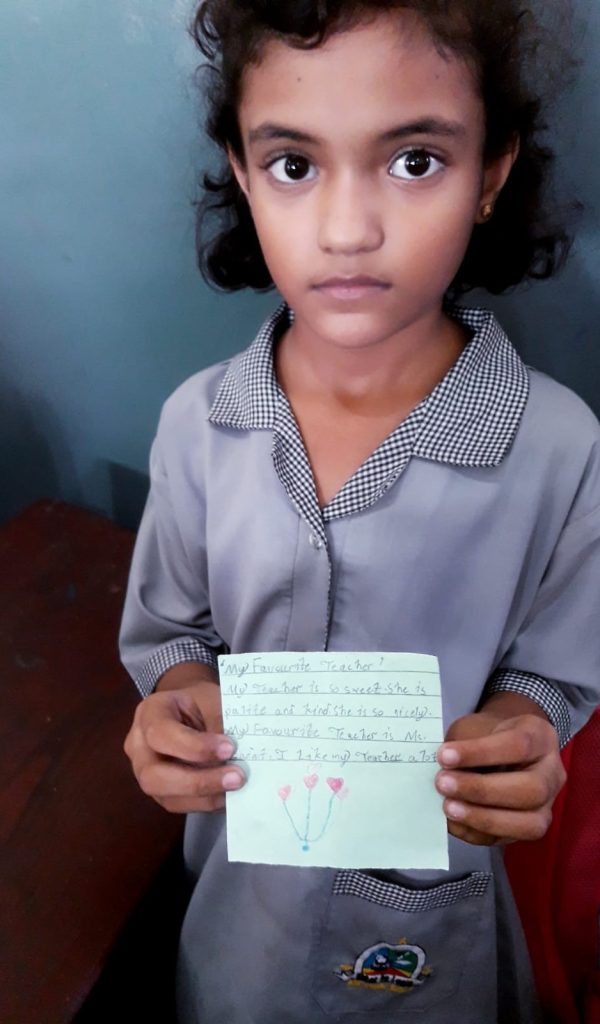 'My Favourite Teacher'
My Teacher is so sweet. She is
polite and kind. She is so nicely.
My Favourite Teacher is Ms.
I Like my Teacher a lot